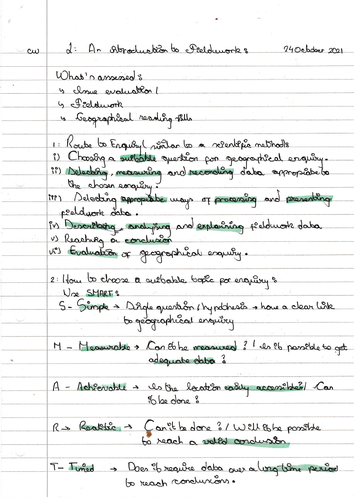 CW L: An introduction to Fieldwork: 24 October 2021
What's assessed:
↳ Issue evaluation /
↳ Fieldwork
↳ Geographical reading skills
1: Route to Enquiry / similar to a scientific method:
i) Choosing a suitable question for geographical enquiry.
ii) Selecting, measuring and recording data appropriate to
the chosen enquiry.
iii) Selecting appropriate ways of processing and presenting
fieldwork data.
iv) Describing, analysing and explaining fieldwork data
v) Reaching a conclusion
vi) Evaluation of geographical enquiry.
2: How to choose a suitable topic for enquiry:
Use SMART:
S - Simple → Single question / hypothesis → have a clear link
to geographical enquiry
M - Measurable → Can it be measured? / Is it possible to get
adequate data?
A - Achievable → Is the location easily accessible / Can
it be done?
R → Realistic → Can it be done? / Will it be possible
to reach a valid conclusion
T - Timed → Does it require data over a long time period
to reach conclusions.